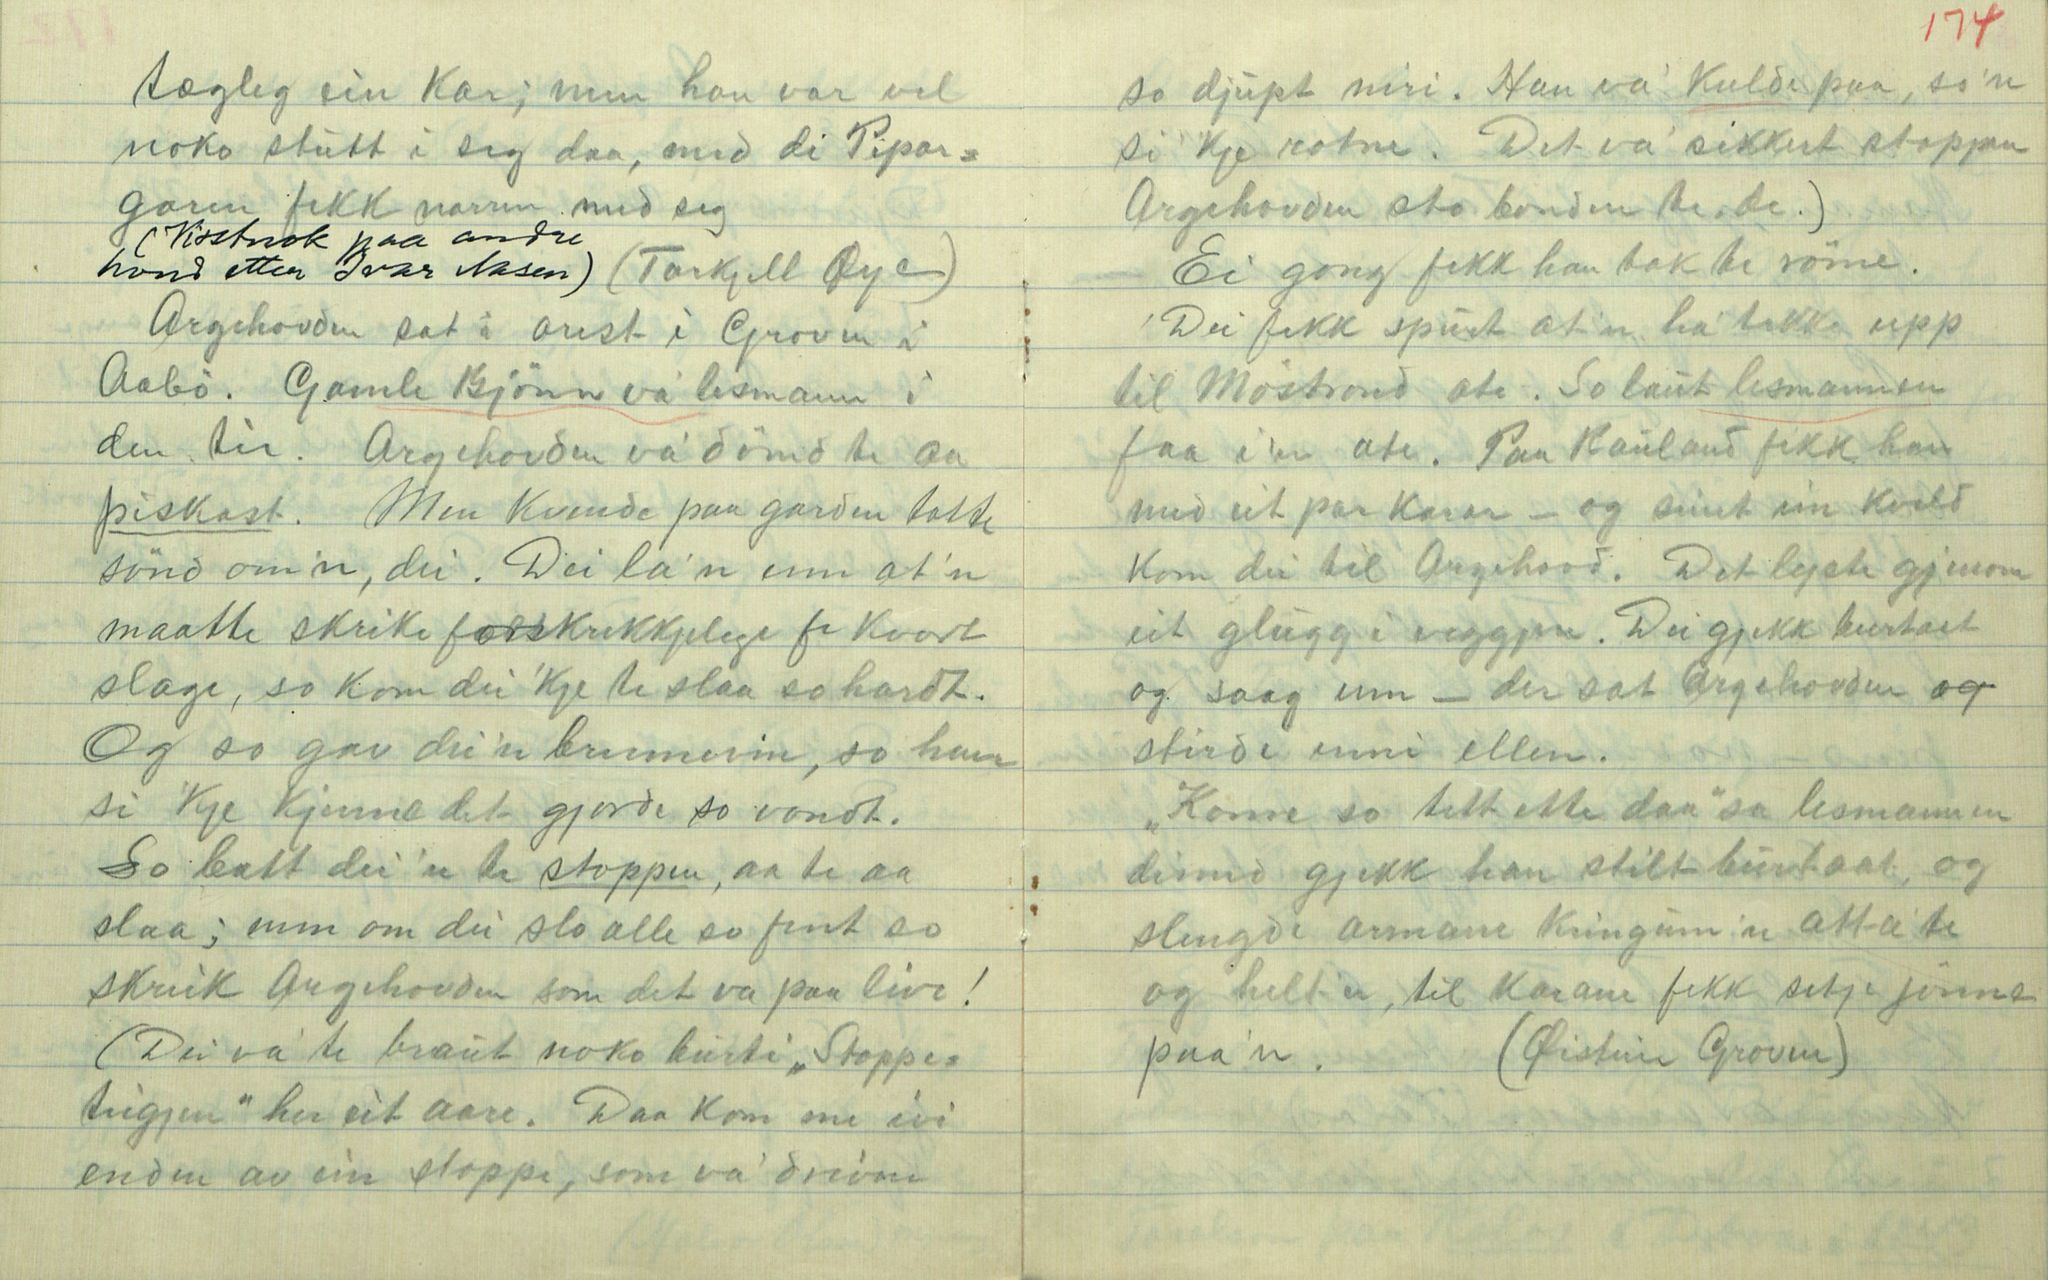 tægleg ein kar; men han var vel
noko stutt i seg daa, med di Pipar=
garen fekk narren med seg
(Visstnok paa andre
hond etter Ivar Aasen) (Torkjell Øye)
Argehovden sat i arest i Groven i
Aabö. Gamle Björn va' lesmann i
den tid. Argehovden va' dömd te aa
piskast. Men kvende paa garden totte
sönd om'n, dei. Dei la'n unn at'n
maatte skrike forskrekkjelege fe kvort
slage, so kom dei 'kje te slaa so hardt.
Og so gav dei'n brennevin, so han
si 'kje kjenne det gjorde so vondt.
So batt dei'n te stoppen, aa te aa
slaa; men om dei slo alle so fint so
skreik Argehovden som det va paa live!
(Dei va' te braut noko burti „Stoppe=
teigjen" her eit aare. Daa kom me ivi
enden av ein stoppe, som va' driven
174
so djupt niri. Han va' kulde paa, so'n
si 'kje rotne. Det va' sikkert stoppen
Argehovden sto bonden te, de.)
Ei gong fekk han tak te röme.
Dei fekk spurt at'n ha' tekke upp
til Möstrond ate. So laut lesmannen
faa i'n ate. Paa Rauland fekk han
med eit par karar – og seint ein kveld
kom dei til Argehovd. Det lyste gjenom
eit glugg i veggjen. Dei gjekk burtaat
og saag inn – der sat Argehovden og
stirde inni ellen.
„Kome so tett ette daa" sa lesmannen
dermed gjekk han stilt burtaat, og
slengde armane kringum'n atta'te
og helt'n, til karane fekk setje jönne
paa'n. (Øistein Groven)